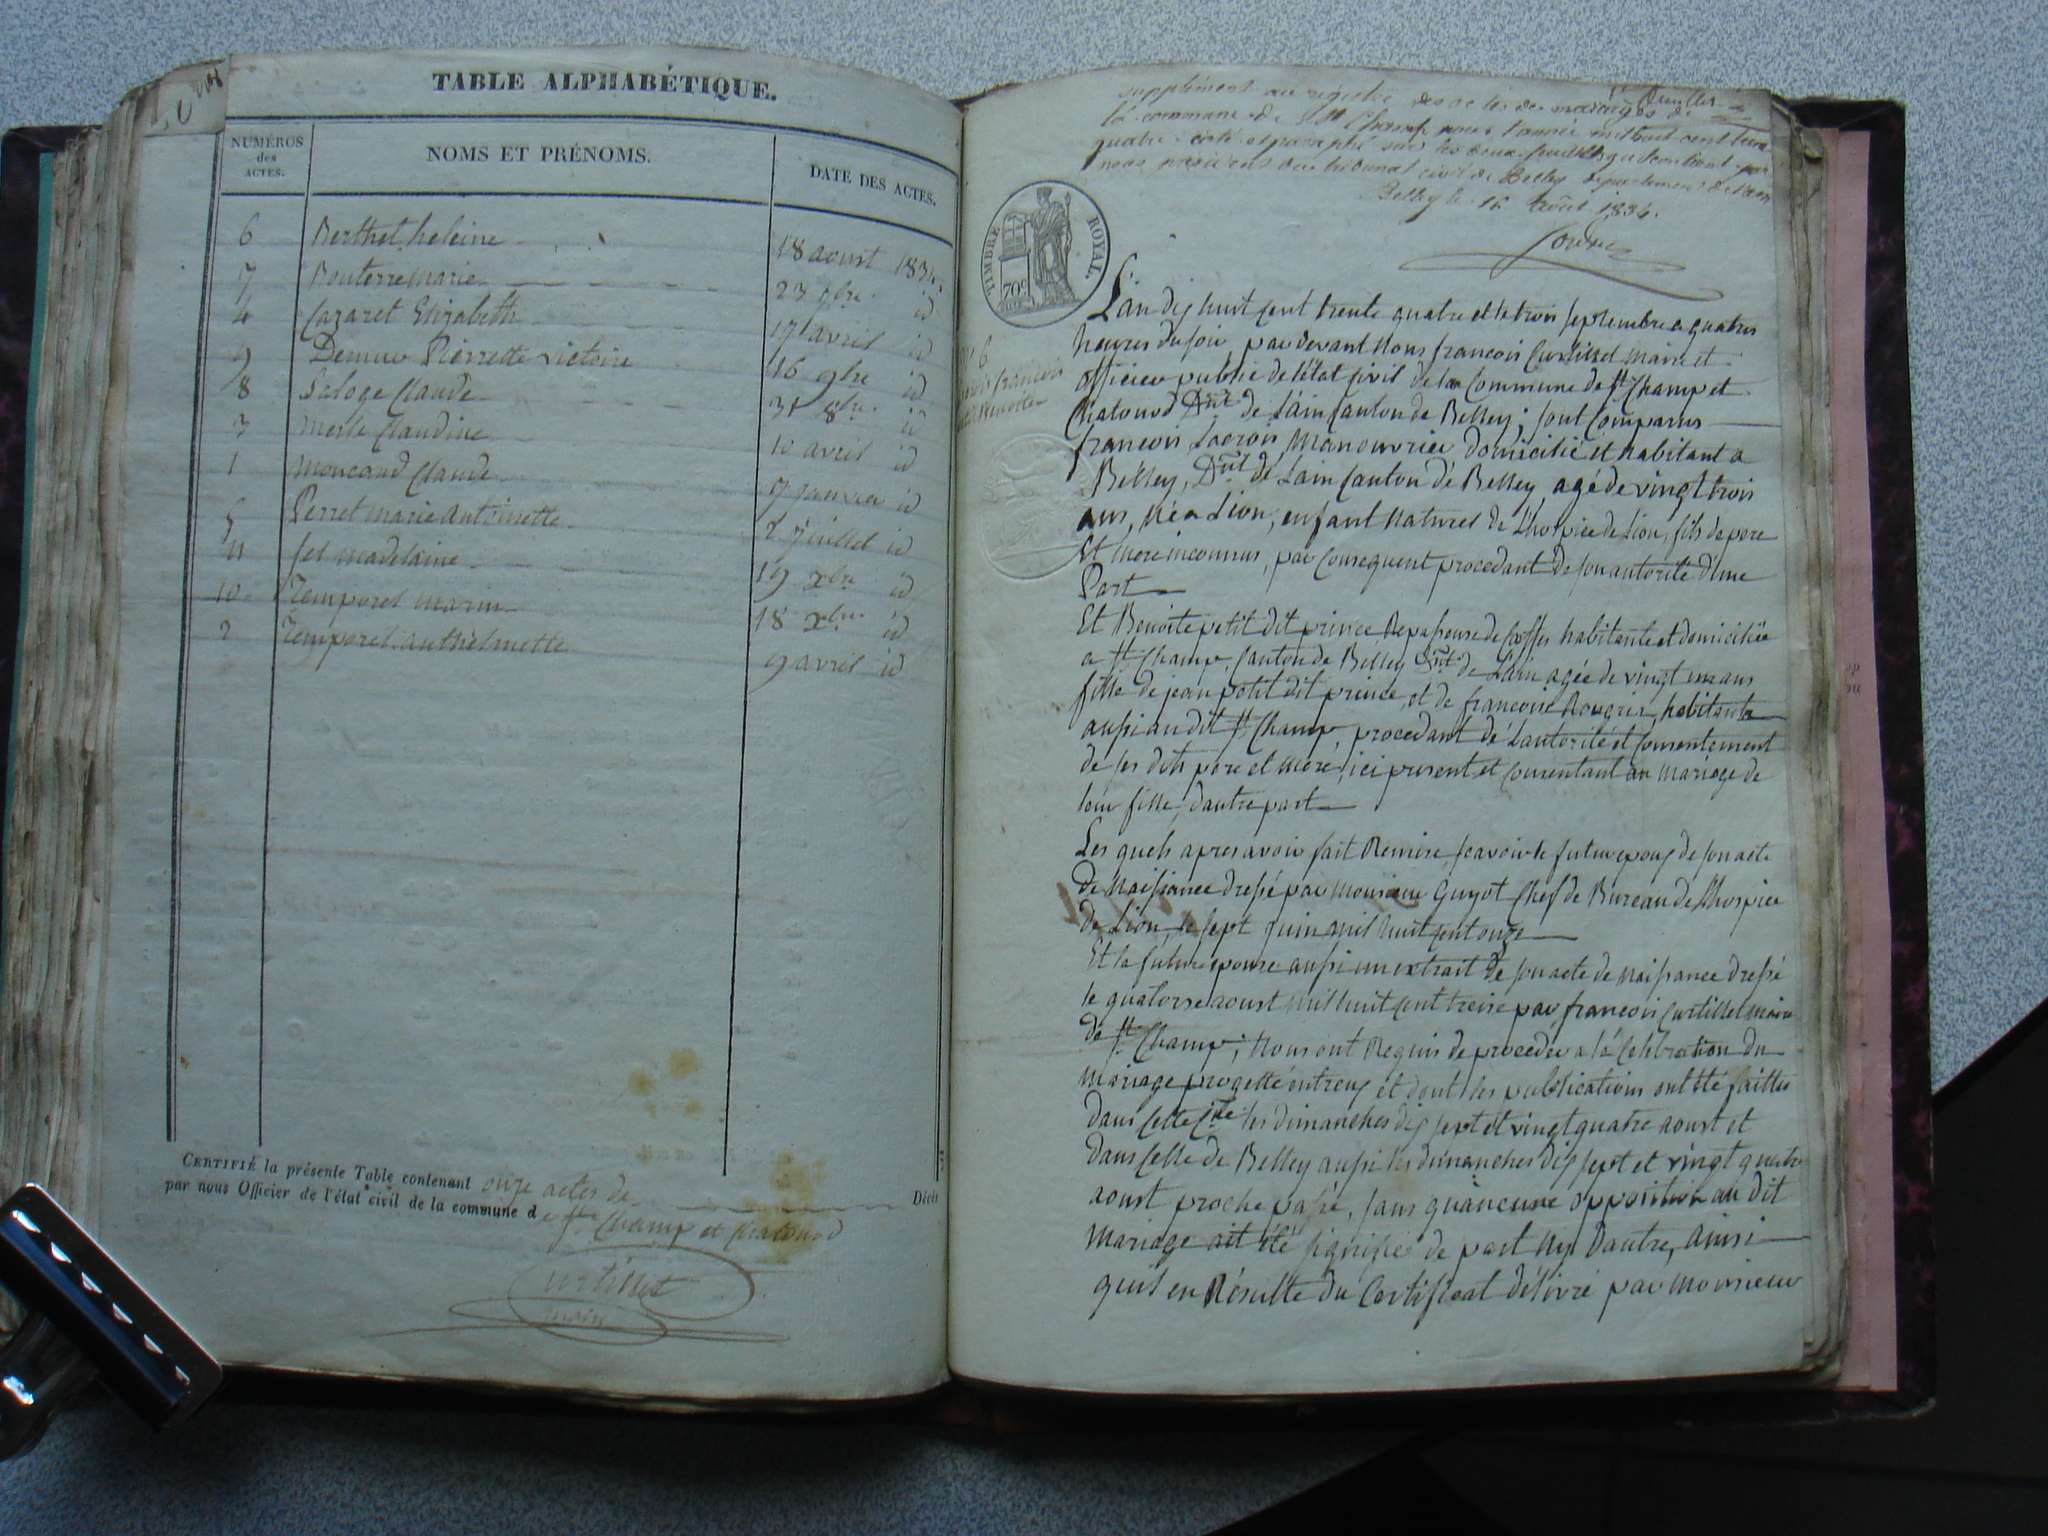 TABLE ALPHABÉTIQUE.
NUMÉROS des ACTES.
NOMS ET PRÉNOMS.
DATE DES ACTES.
6 Berthet heleine 18 aoust 1834
7 Bouterre marie 23 7bre id
4 Cazaret Elizabeth 17 avril id
9 Pierrette victoire 16 9bre id
8 Claude 31 8bre id
3 Merle Claudine 10 avril id
1 Moncaud Claude 7 janvier id
5 Perret marie antoinette 2 juillet id
11 madelaine 19 xbre id
10 Temporel marin 18 xbre id
2 Temporel anthelmette 9 avril id
CERTIFIÉ la présente Table contenant onze actes de Décès
par nous Officier de l'état civil de la commune de St Champ et Chatonod
Curtillet
maire
supplément au registre des actes de mariages de
la commune de St Champ pour l'année mil huit cent trente
quatre coté et paraphé sur les deux feuillets qu'il contient par
nous président du tribunal civil de Belley département de l'ain
Belley le 16 août 1834.
TIMBRE ROYAL.
70c
L'an dix huit cent trente quatre et le trois septembre a quatres
heures du soir, par devant Nous francois Curtillet Maire et
officier public de l'état Civil de la Commune de St Champ et
Chatonod Dmt de Lain Canton de Belley; sont Comparus
francois Lacroix Manouvrier domicilié et habitant a
Belley, Dmt de Lain Canton de Belley, agé de vingt trois
ans, Né a Lion, enfant Naturel de L'hospice de Lion, fils de pere
Et Mere inconnus, par Consequent procedant de son autorité d'une
Part
Et Benoite petit dit prince Repasseuse de habitante et domiciliée
a St Champ, Canton de Belley Dmt de Lain agée de vingt un ans
fille de jean petit dit prince, et de francoise habitants
aussi au dit St Champ, procedant de L'autorité et Consentement
de ses dits pere et Mere, ici present et Consentant au Mariage de
leur fille, d'autre part
Les quels apres avoir fait Remise, scavoir le futur epoux de son acte
de Naissance dressé par Monsieur Guyot Chef de Bureau de L'hospice
de Lion, le sept juin Mil huit cent onze
Et la future epouse aussi un extrait de son acte de Naissance dressé
le quatorze aoust Mil huit cent treize par francois Curtillet Maire
de St Champ; Nous ont Requis de proceder a la Celebration du
Mariage progetté entreux et dont les publications ont été faittes
dans Cette Cne les dimanches dix sept et vingt quatre aoust et
dans Celle de Belley aussi les dimanches dix sept et vingt quatre
aoust proche passé, sans qu'aucune opposition au dit
Mariage ait été signifié de part Ny D'autre, Ainsi
quil en Résulte du Certificat délivré par Monsieur